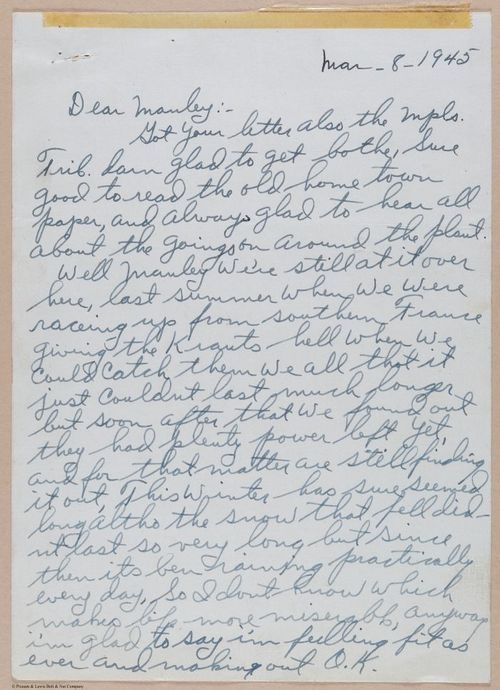 Mar - 8 - 1945
Dear Manley:-
Got your letter also the Mpls.
Trib. darn glad to get bothe, sure
good to read the old home town
paper, and always glad to hear all
about the goings on around the plant.
Well Manley we're still at it over
here, last summer when we were
raceing up from southern France
giving the Krauts hell when we
could catch them we all that it
just couldnt last much longer
but soon after that we found out
they had plenty power left yet,
and for that matter are still finding
it out, This winter has sure seemed
long altho the snow that fell did-
nt last so very long but since
then its ben raining practically
every day, so I dont know which
makes life more miserable, anyway
i'm glad to say i'm feelling fit as
ever and making out O.K.
© Pioneer & Lewis Bolt & Nut Company